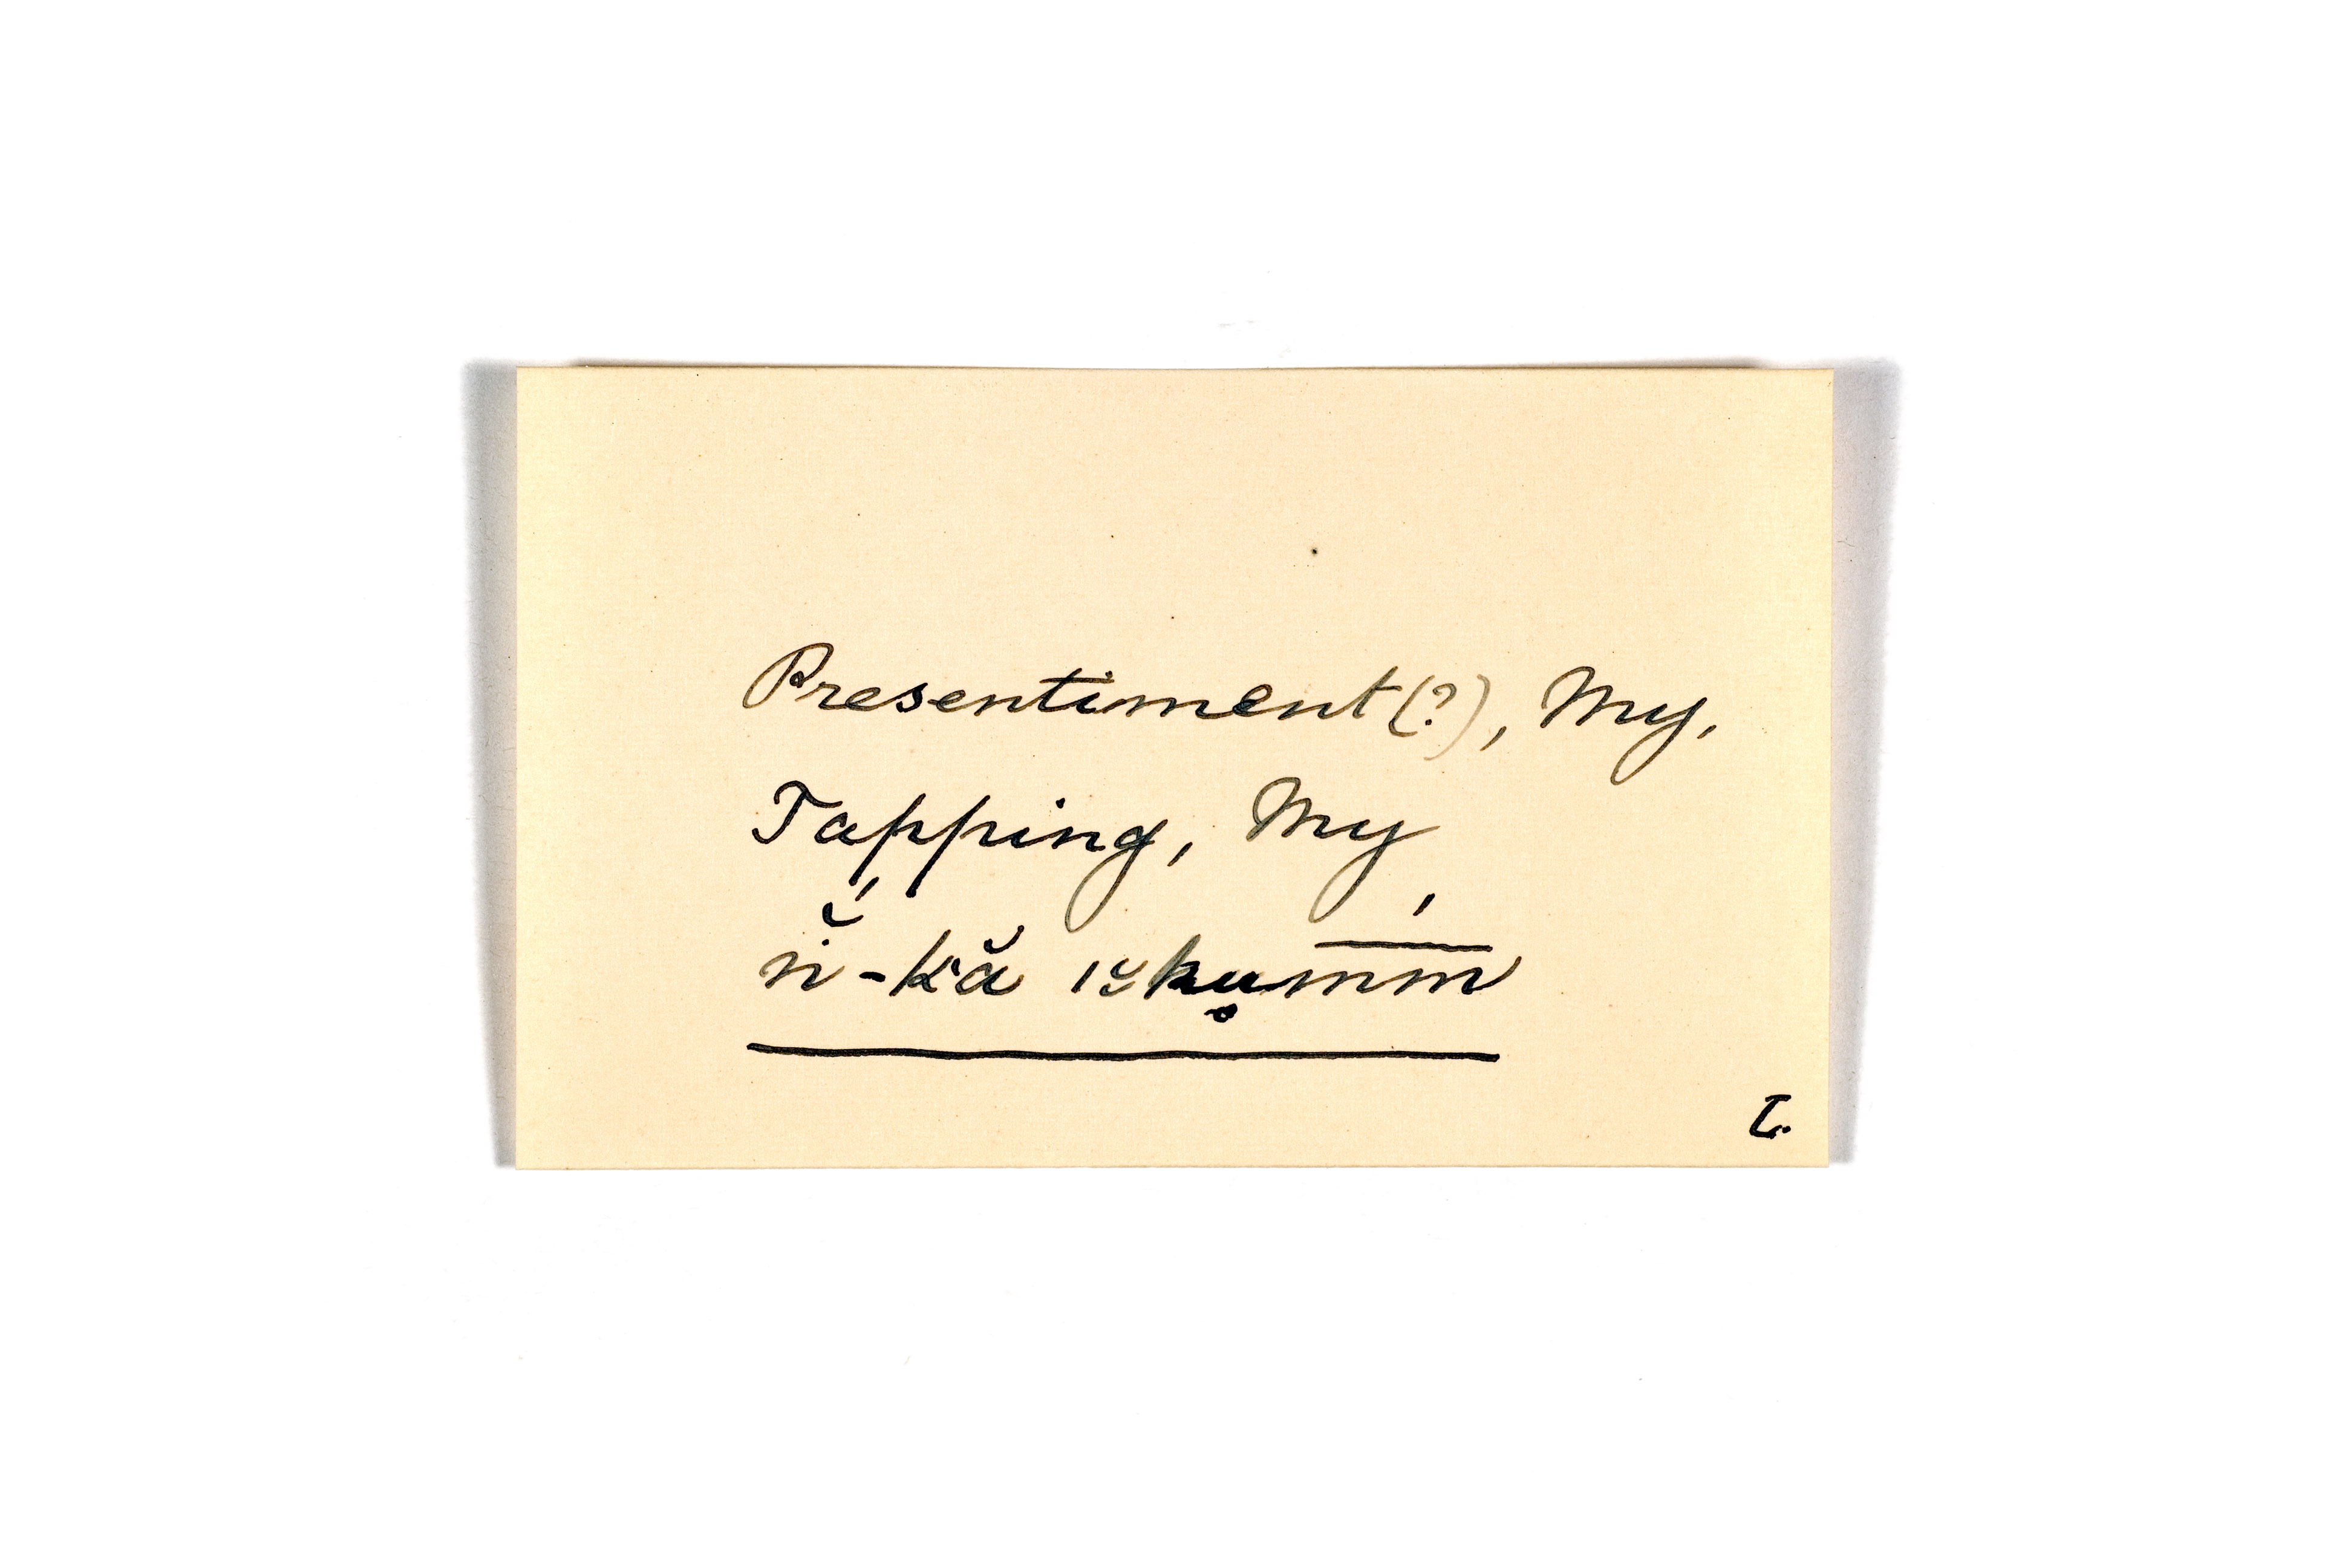 Presentiment(?), My,
Tapping, My
n̆̇́-kă ĭskụm̅m̅́
I.